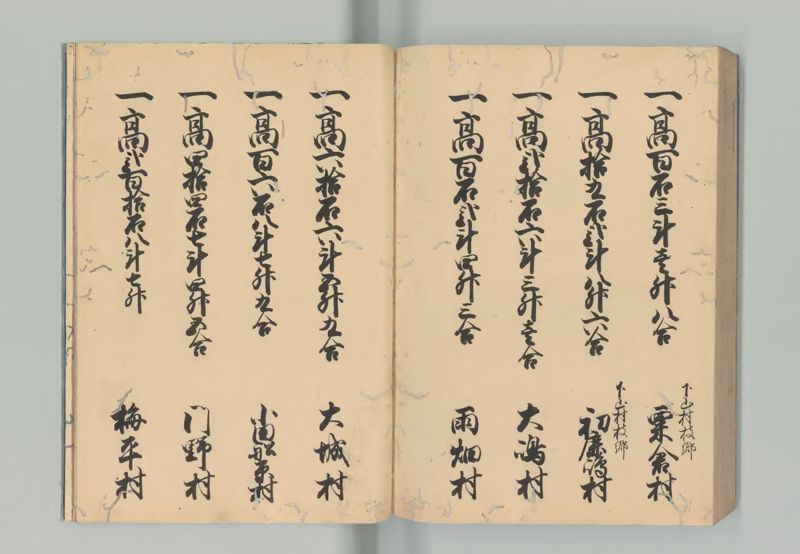 一高百石三斗壱升八合
下山村枝郷
粟倉村
一高拾九石弐斗八升六合
下山村枝郷
初鹿嶋村
一高弐拾石六斗三升壱合
大嶋村
一高百石弐斗四升三合
雨畑村
一高六拾石六斗五升九合
大城村
一高百六石八斗七升九合
小田船原村
一高四拾四石七斗四升五合
門野村
一高弐百拾石八斗七升
梅平村